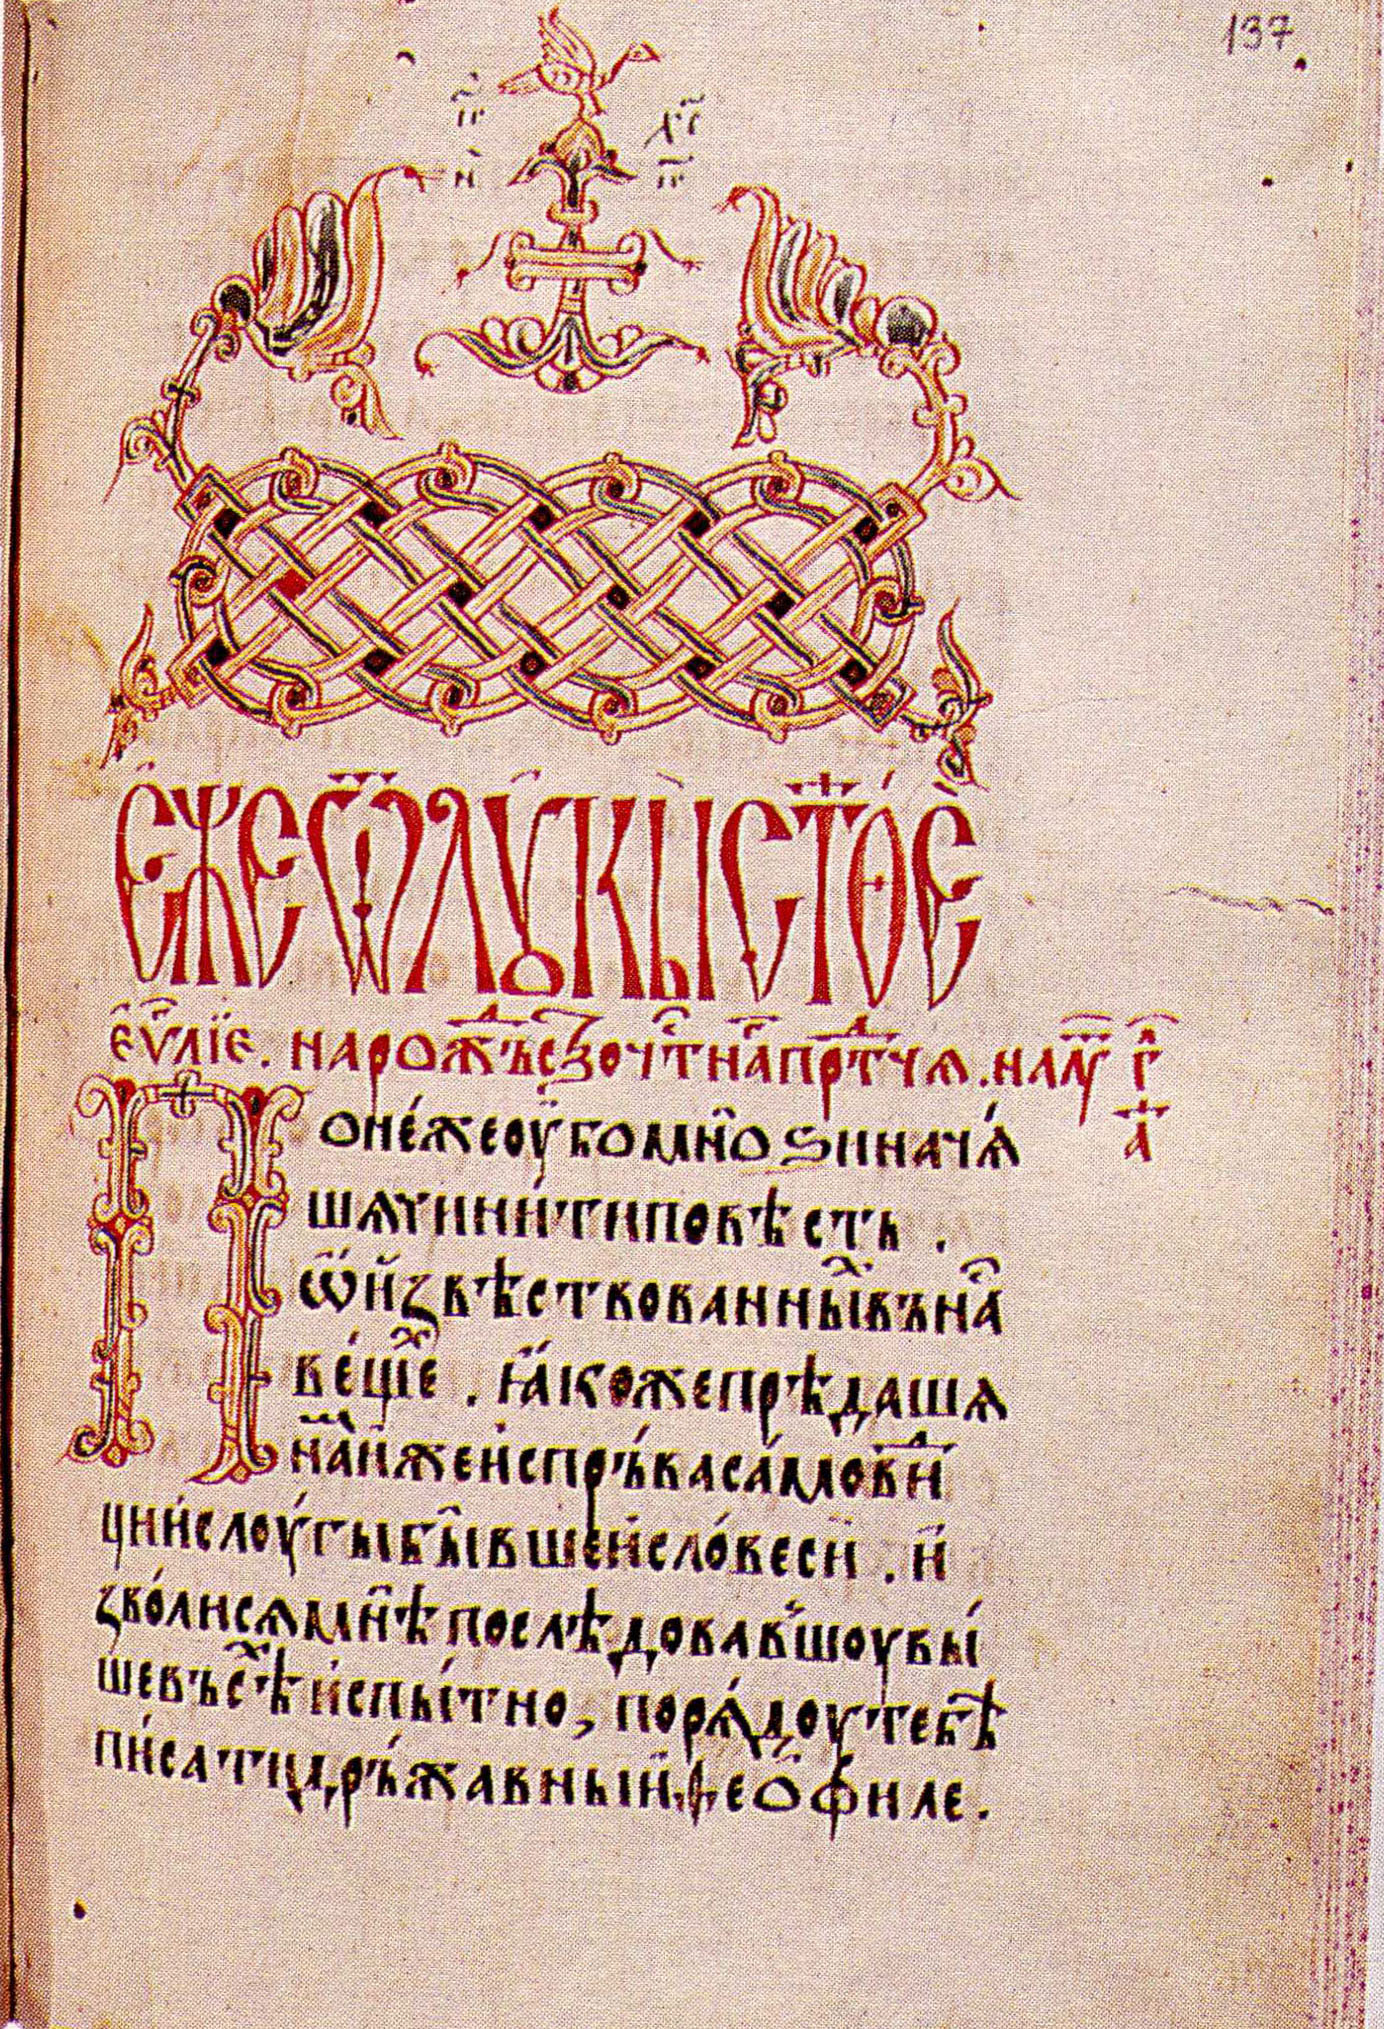 137
І҃С Х҃С
НИ КА
ЕЖЕ Ѿ ЛꙊКЫ С҃ТОЕ
еѵ҃лїе. на рожⷣъс зⷱо чтⷭна прⷣтчѧ. на лѵ҃ г҃
а҃
Понеже оу҆бо мно́ѕи нача́
шѧ чини́ти повѣсть .
ѿ и҆звѣствованныⷯ въ на
ве́щеⷯ . ꙗ҆́коже прѣдашѧ
наⷨ и҆же и҆спръ́ва са́мовиⷣ
ци и҆ слоу́гы бы́вшеи҆ сло́веси . и҆
зво́лисѧ мнѣ послѣдовавшоу вы́
ше въсѣⷯ и҆спы́тно, порѧ́доу тебѣ
пи́сати дръ́жавныи ѳео́филе .